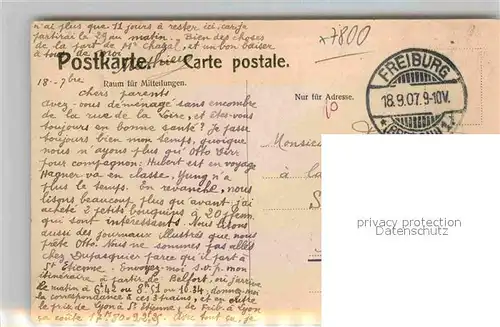 n'ai plus que 11 jours à rester ici, car je
partirai le 29 au matin. Bien des choses
de la part de Mr Chagal, et un bon baiser
à tous de moi.
+7800
Postkarte. Carte postale.
18 - 7bre
Raum für Mitteilungen.
Nur für Adresse.
FREIBURG
18.9.07. 9-10V.
Chers parents
avez-vous déménagé sans encombre
de la rue de la Loire, et êtes-vous
toujours en bonne santé? Je passe
toujours bien mon temps, quoique
nous n'ayons plus qu'Otto
pour compagnon: Hubert est en voyage
Wagner va en classe, Yung n'a
plus le temps. En revanche, nous
lisons beaucoup plus qu'avant: j'ai
acheté 2 petits bouquins à 20 pfen.
qui sont intéressants. Nous lisons
aussi des journaux illustrés que nous
prête Otto. Nous ne sommes pas allés
chez Dufasquier parce qu'il part à
St Etienne. Envoyez-moi s.v.p. mon
itinéraire à partir de Belfort, où j'arrive
le matin à 6h42 ou 8h51 ou 10.34; donnez-moi
la correspondance à ces 3 trains, et en outre
le prix de Lyon à St Etienne, de Frib. à Lyon
ça coûte Avec tout ça, je
Monsieur
à la
S
privacy protection